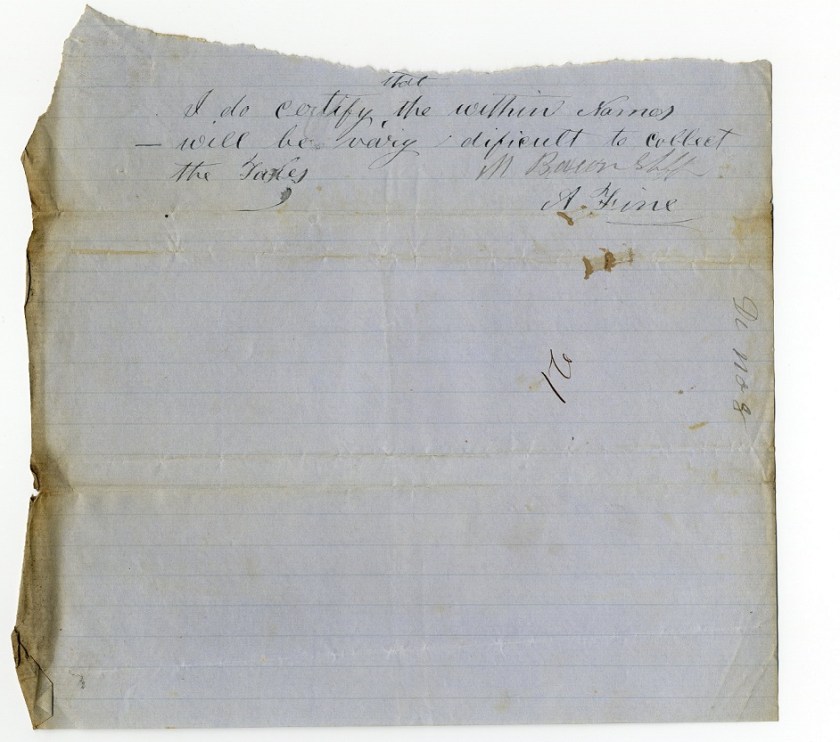 that
I do certify the within Names
— will be vary dificult to collect
the Taxes
M Bacon Shff
A. Fine